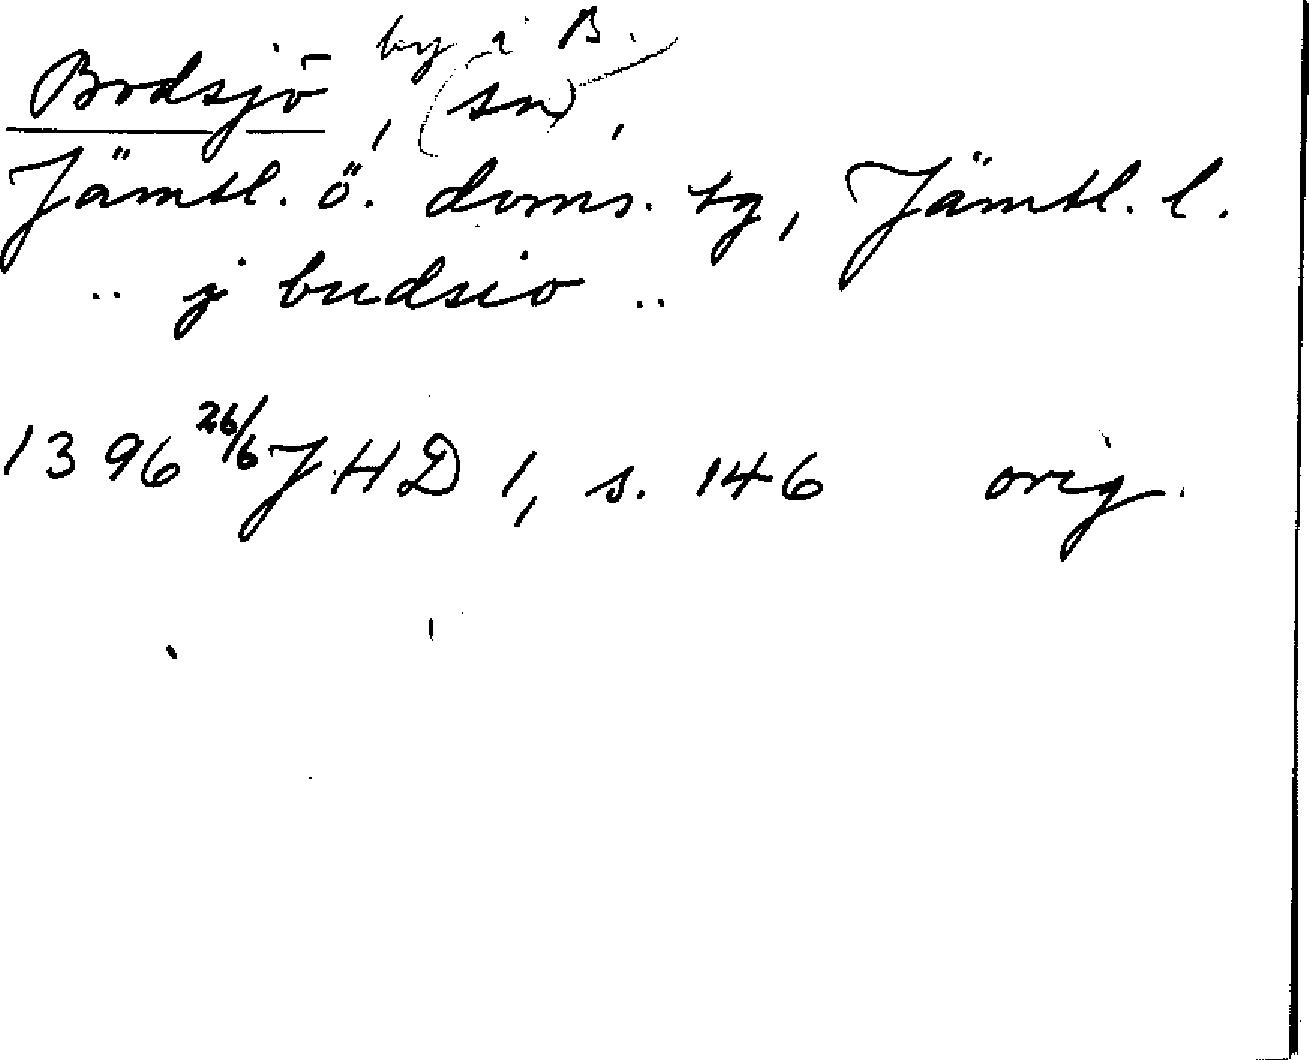 by i B.
Bodsjö, (sn),
Jämtl. ö. doms. tg, Jämtl. l.
.. j budsio ..
1396 26/6 JHD 1, s. 146 orig.